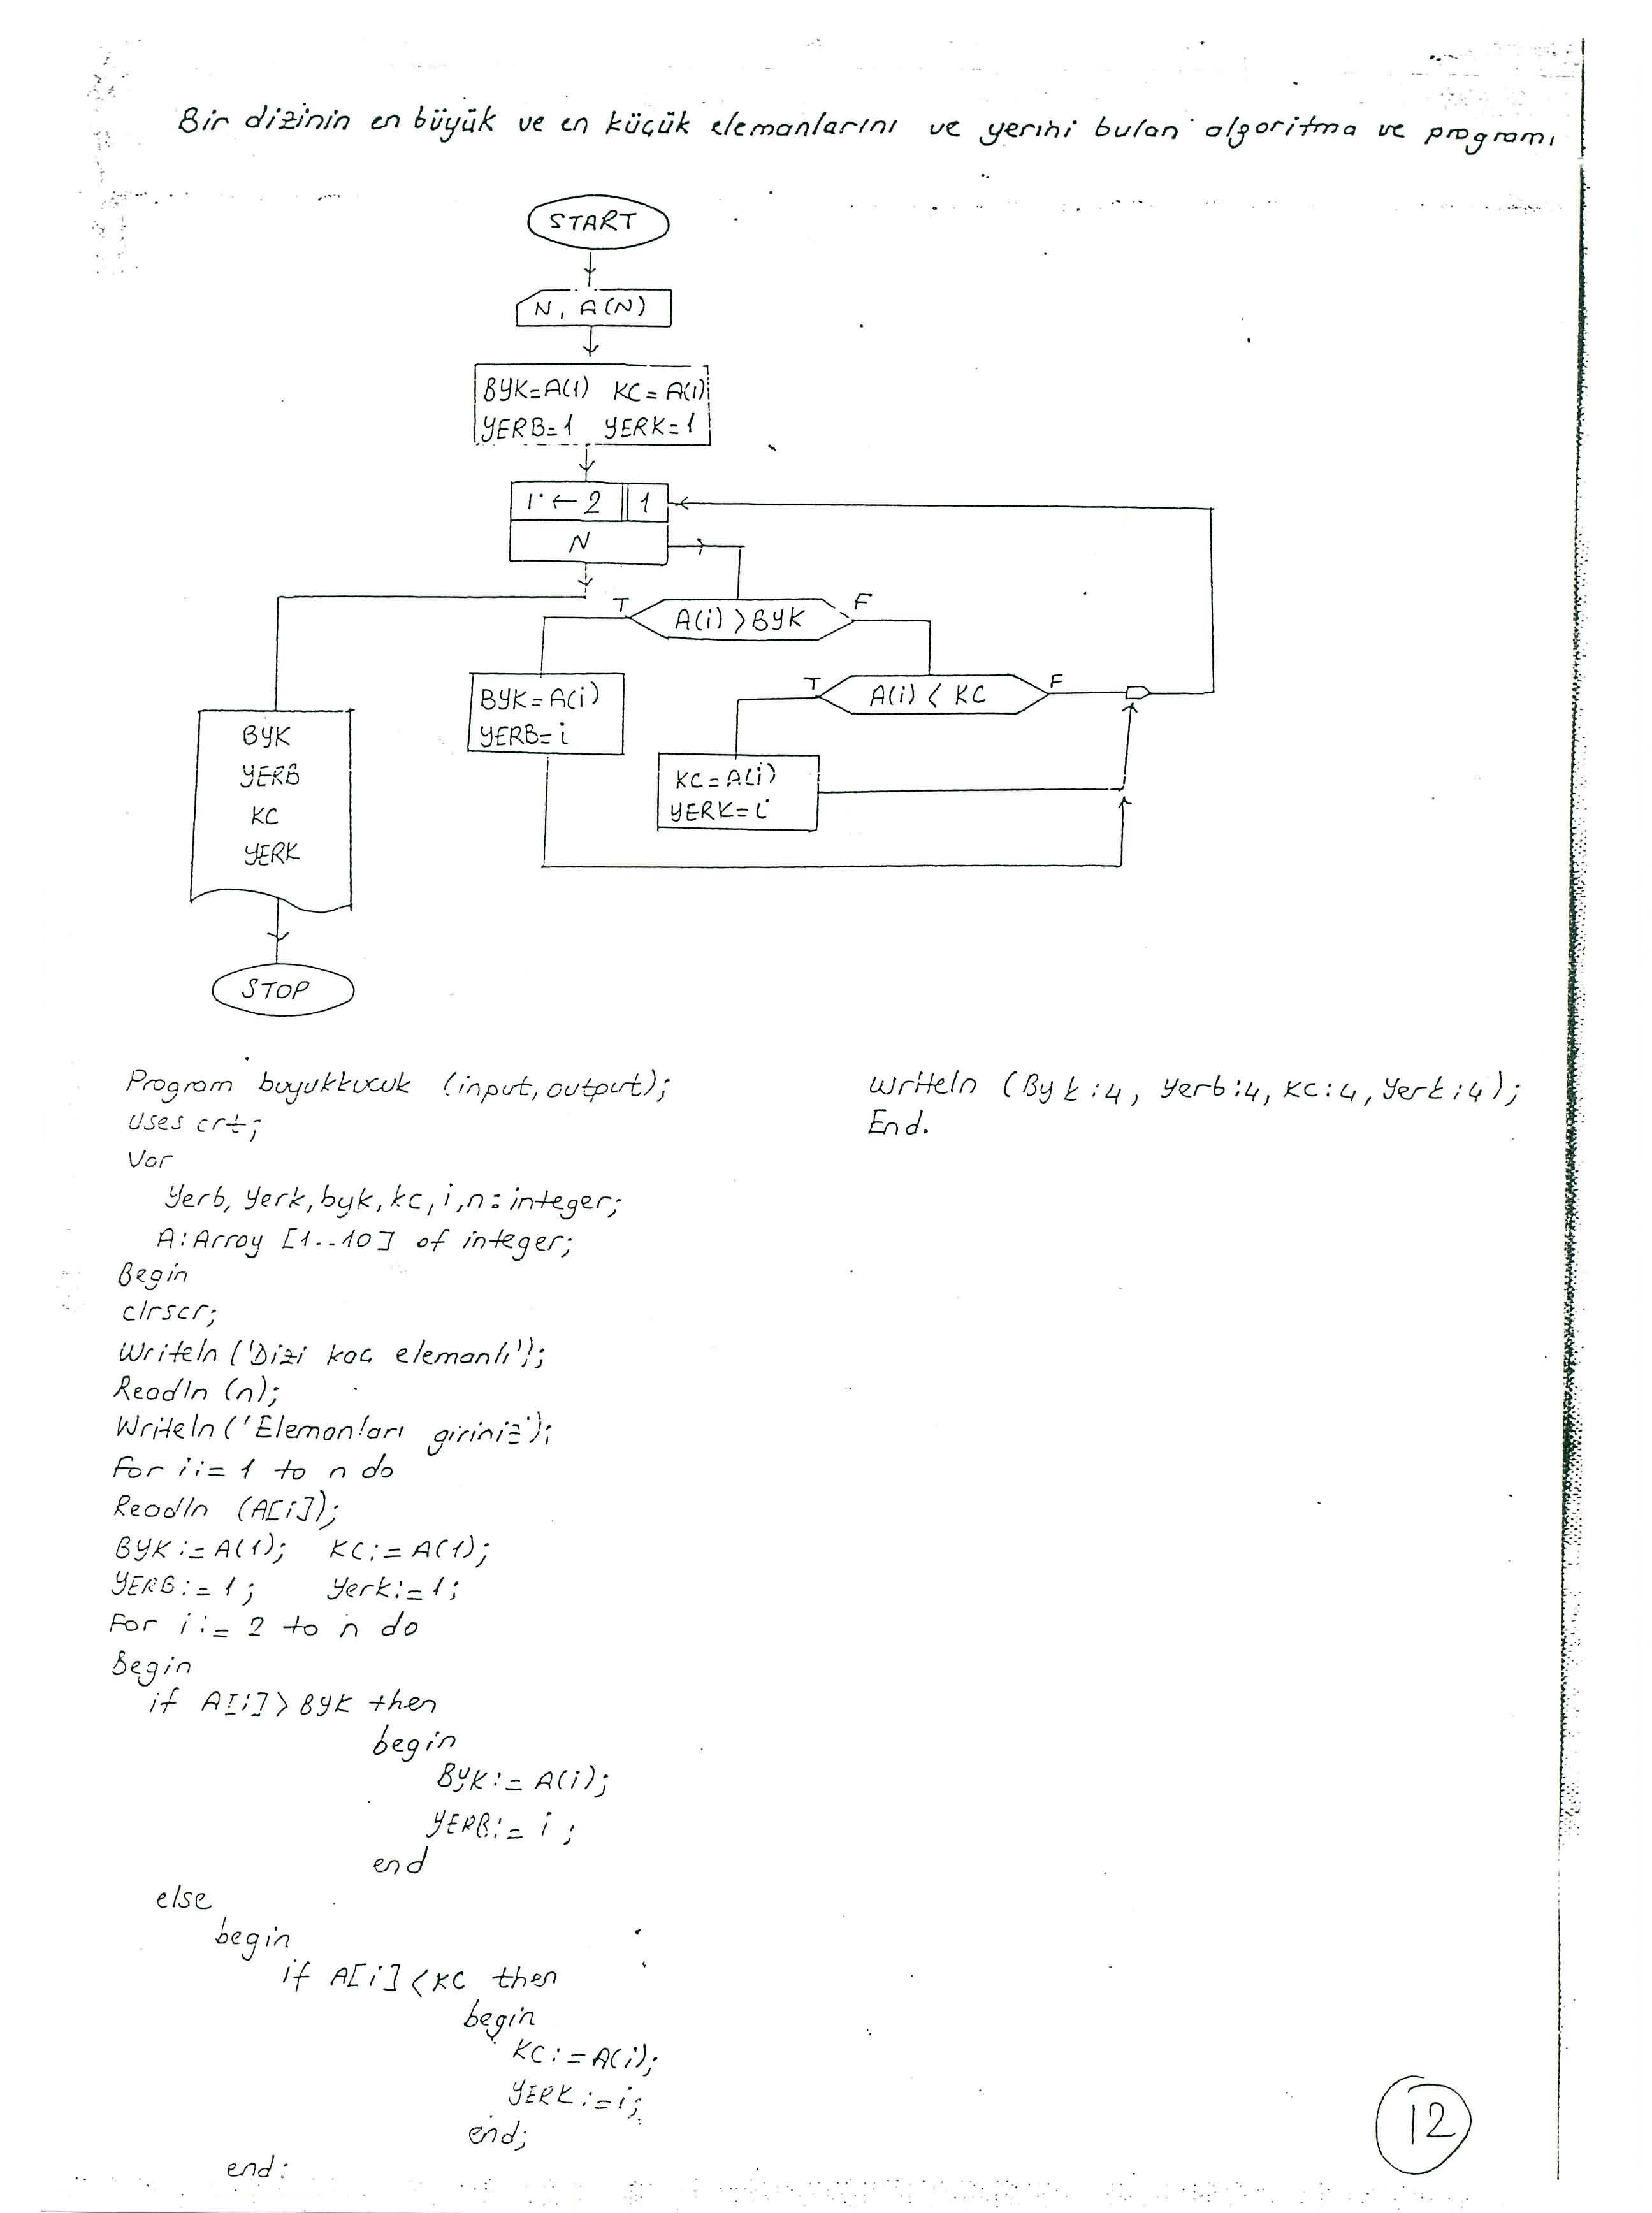 Bir dizinin en büyük ve en küçük elemanlarını ve yerini bulan algoritma ve programı
START
N, A(N)
BYK=A(1) KC=A(1)
YERB=1 YERK=1
i ← 2 1
N
T A(i) > BYK F
T A(i) < KC F
BYK=A(i)
YERB=i
KC=A(i)
YERK=i
BYK
YERB
KC
YERK
STOP
Program buyukkucuk (input, output);
Uses crt;
Var
Yerb, Yerk, byk, kc, i, n: integer;
A: Array [1..10] of integer;
Begin
clrscr;
Writeln ('Dizi kaç elemanlı');
Readln (n);
Writeln ('Elemanları giriniz');
For i:= 1 to n do
Readln (A[i]);
BYK:= A(1); KC:= A(1);
YERB:= 1; Yerk:= 1;
For i:= 2 to n do
Begin
if A[i] > BYK then
begin
BYK:= A(i);
YERB:= i;
end
else
begin
if A[i] < KC then
begin
KC:= A(i);
YERK:= i;
end;
end:
Writeln (Byk:4, Yerb:4, KC:4, Yerk:4);
End.
12